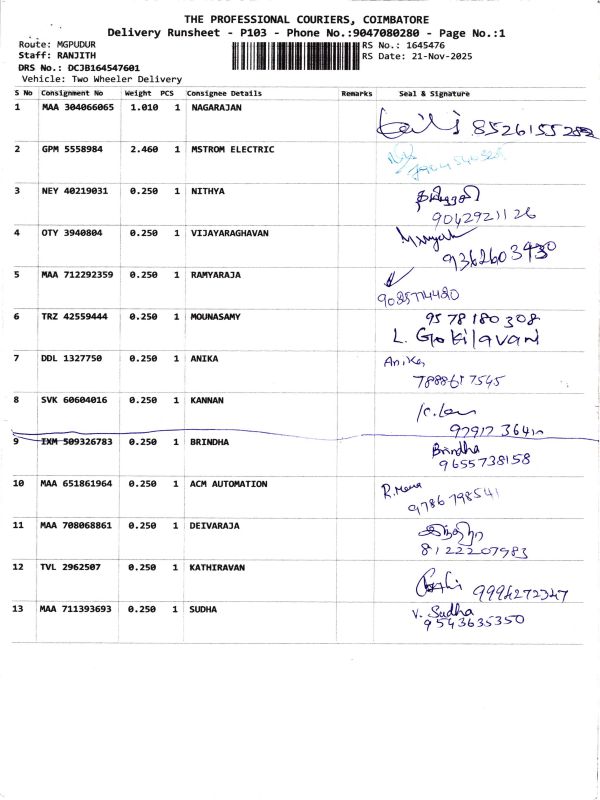 THE PROFESSIONAL COURIERS, COIMBATORE
Delivery Runsheet - P103 - Phone No.:9047080280 - Page No.:1
Route: MGPUDUR RS No.: 1645476
Staff: RANJITH RS Date: 21-Nov-2025
DRS No.: DCJB164547601
Vehicle: Two Wheeler Delivery
S No Consignment No Weight PCS Consignee Details Remarks Seal & Signature
1 MAA 304066065 1.010 1 NAGARAJAN
2 GPM 5558984 2.460 1 MSTROM ELECTRIC
3 NEY 40219031 0.250 1 NITHYA
9042921126
4 OTY 3940804 0.250 1 VIJAYARAGHAVAN
5 MAA 712292359 0.250 1 RAMYARAJA
6 TRZ 42559444 0.250 1 MOUNASAMY 9578180308
L. Gokilavani
7 DDL 1327750 0.250 1 ANIKA Anika
8 SVK 60604016 0.250 1 KANNAN
9 IXM 509326783 0.250 1 BRINDHA Brindha
9655738158
10 MAA 651861964 0.250 1 ACM AUTOMATION
9786798541
11 MAA 708068861 0.250 1 DEIVARAJA
8122207983
12 TVL 2962507 0.250 1 KATHIRAVAN
9994272347
13 MAA 711393693 0.250 1 SUDHA V. Sudha
9543635350